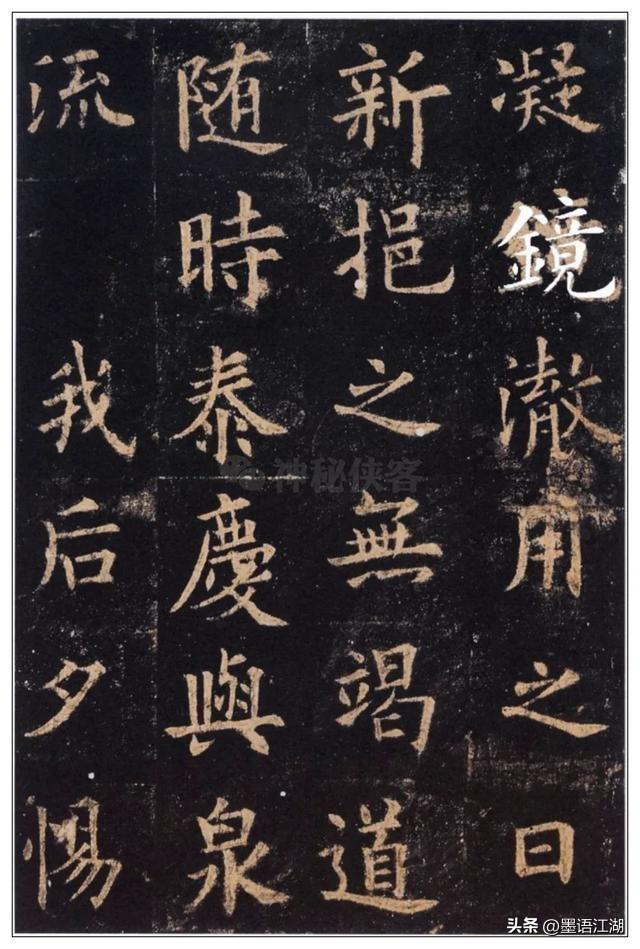 凝鏡澈用之日
新挹之無竭道
随時泰慶與泉
流 我后夕惕
神秘侠客
头条 @墨语江湖